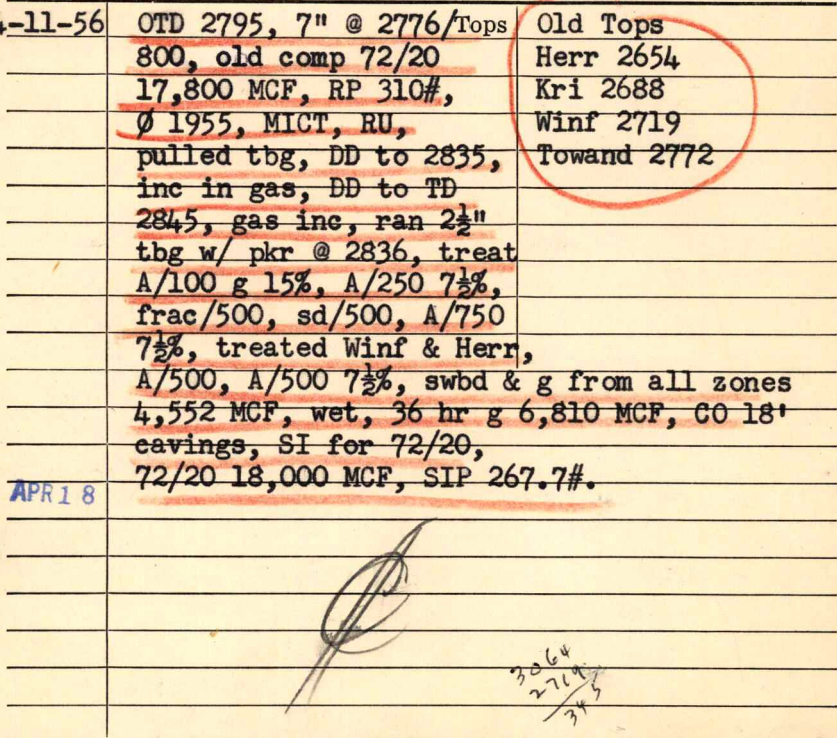 4-11-56 OTD 2795, 7" @ 2776/Tops
800, old comp 72/20
17,800 MCF, RP 310#,
Ø 1955, MICT, RU,
pulled tbg, DD to 2835,
inc in gas, DD to TD
2845, gas inc, ran 2½"
tbg w/ pkr @ 2836, treat
A/100 g 15%, A/250 7½%,
frac/500, sd/500, A/750
7½%, treated Winf & Herr,
A/500, A/500 7½%, swbd & g from all zones
4,552 MCF, wet, 36 hr g 6,810 MCF, CO 18'
cavings, SI for 72/20,
72/20 18,000 MCF, SIP 267.7#.
Old Tops
Herr 2654
Kri 2688
Winf 2719
Towand 2772
APR 18
3064
2719
345